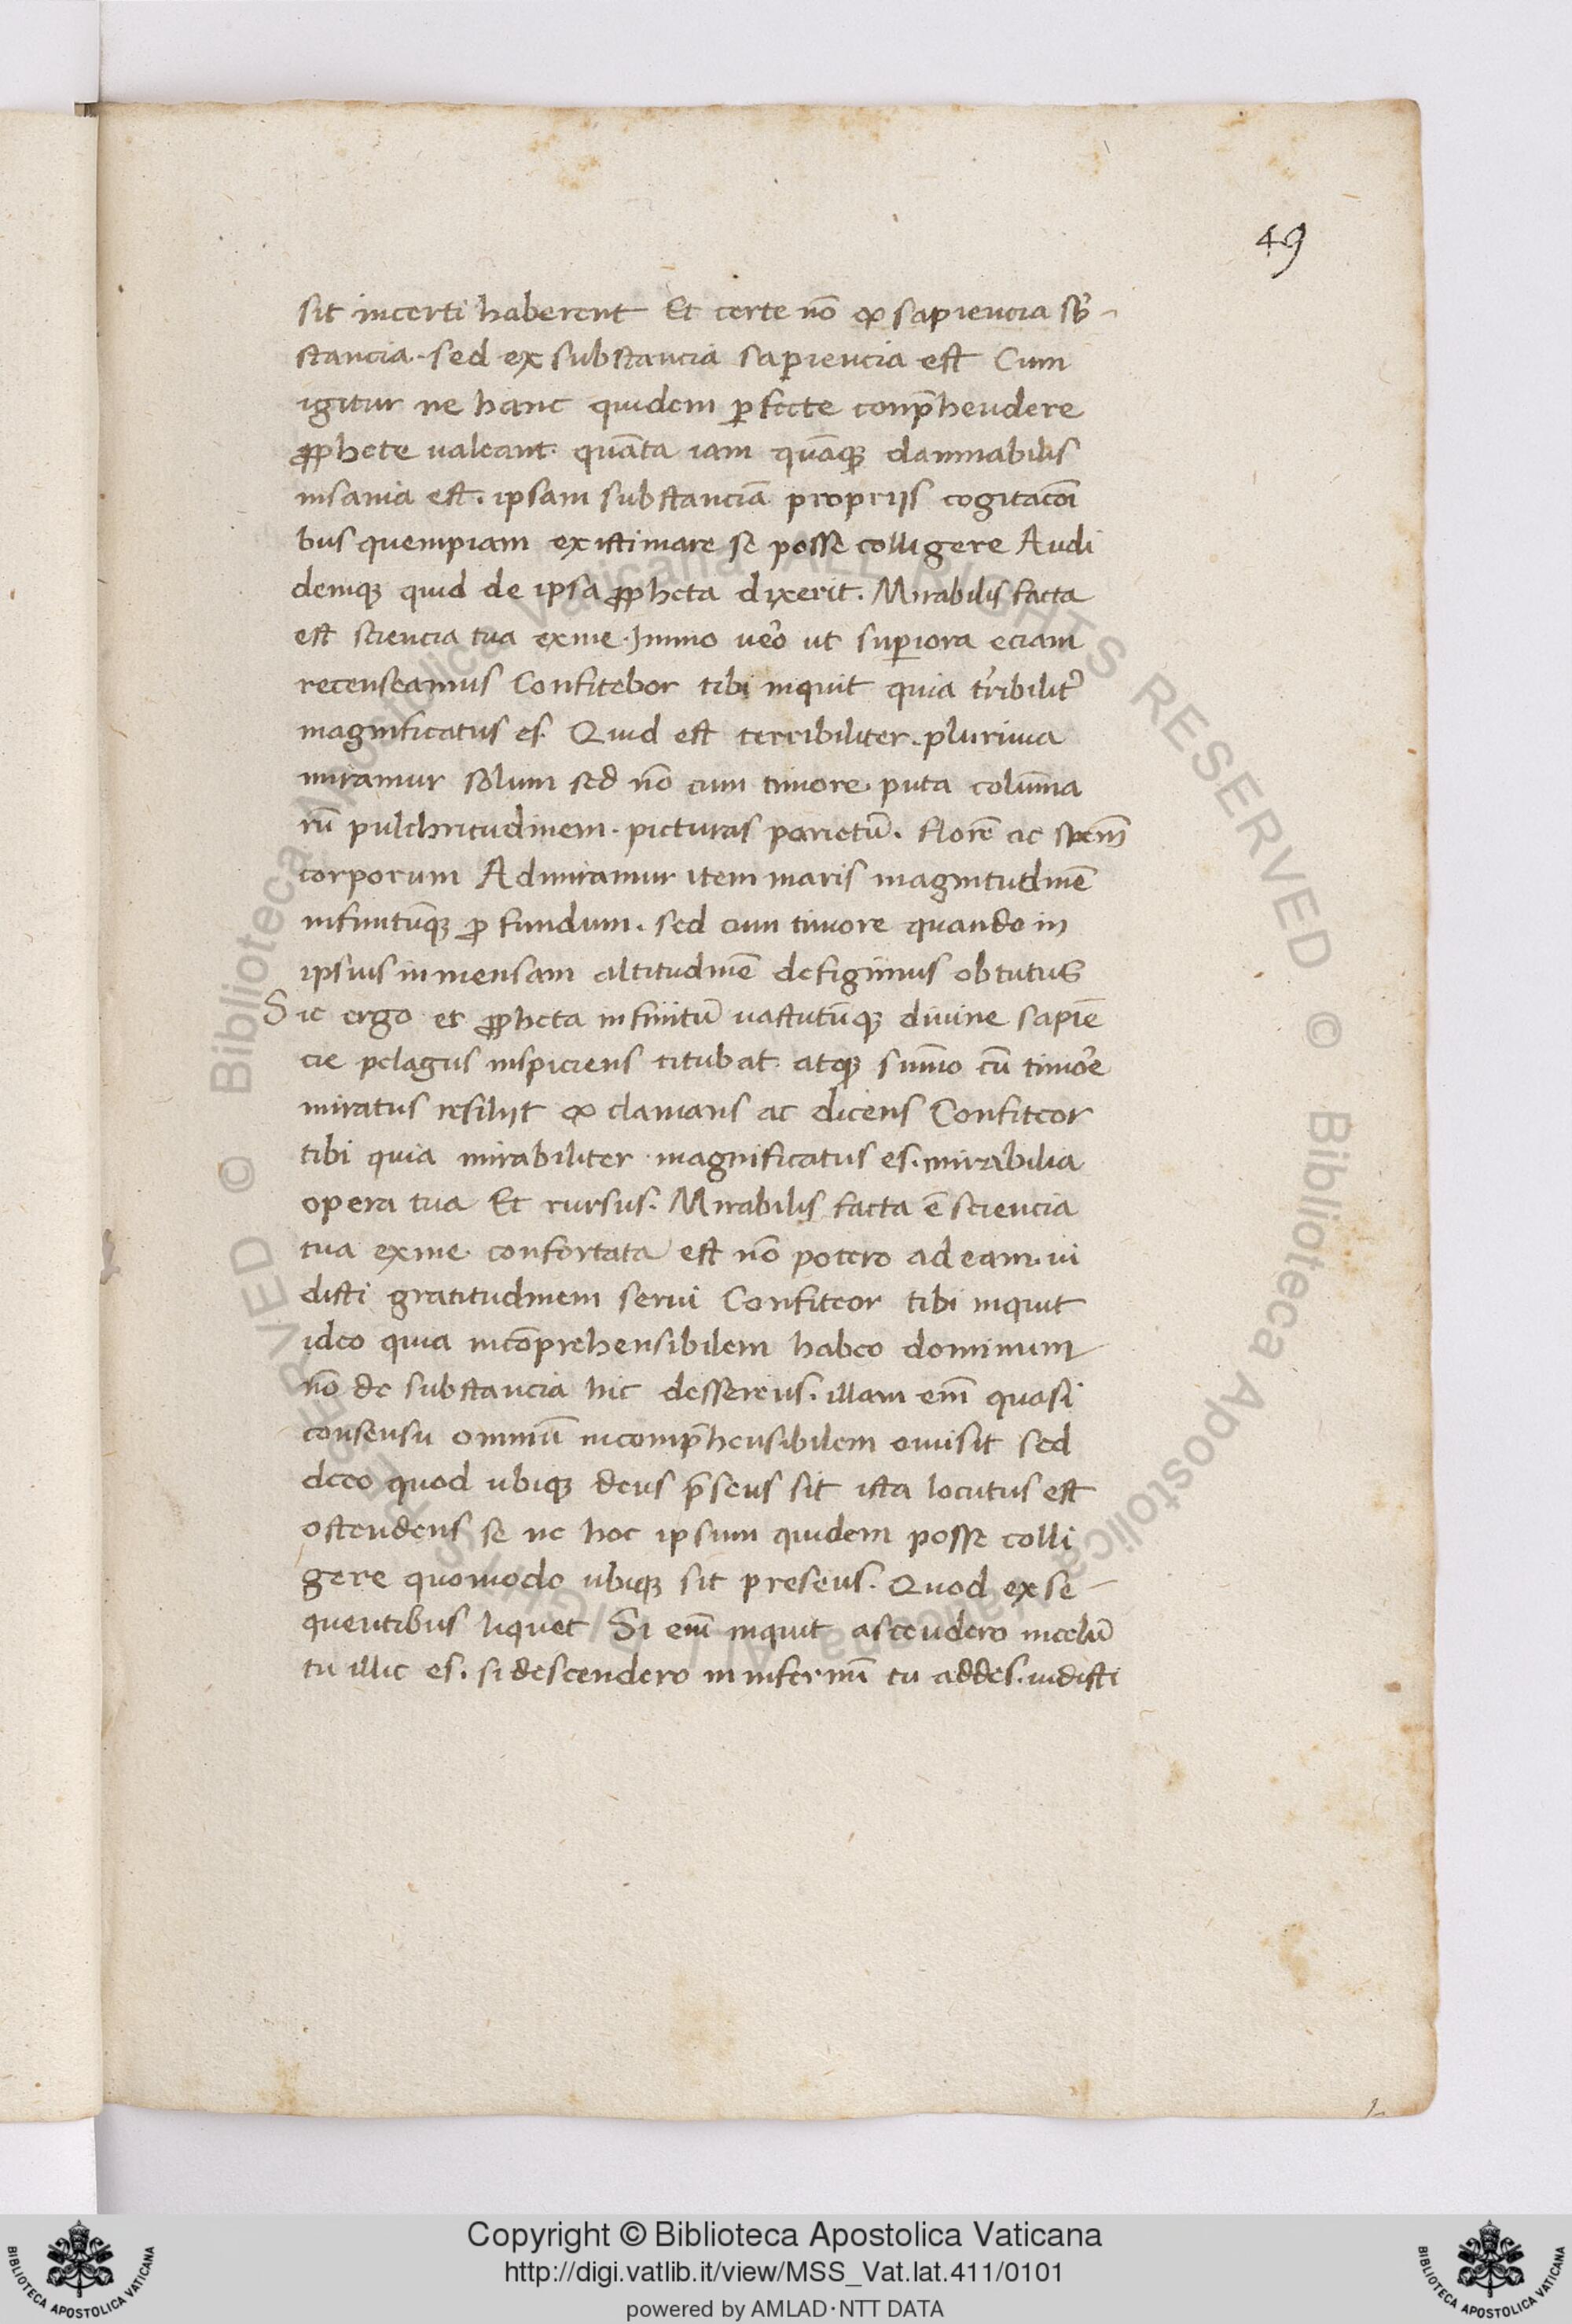 49
sit incerti haberent Et certe nō ex sapiencia sb̄-
stancia. sed ex substancia sapiencia est Cum
igitur ne hanc quidem ꝑfecte conp̄hendere
ꝓphete valeant. quāta iam quāqꝫ damnabilis
insania est. ipsam substanciā propriis cogitacōi
bus quempiam existimare se posse colligere Audi
deniqꝫ quid de ipsa ꝓpheta dixerit. Mirabilis facta
est sciencia tua ex me. Immo ūo ut suꝑiora eciam
recenseamus Confitebor tibi inquit quia t̄ribilit̄
magnificatus es. Quid est terribiliter. plurima
miramur solum sed nō cum timore. puta colūna
rū pulchritudinem. picturas parietū. florē ac spem̄
corporum Admiramur item maris magnitudinē
infinitūqꝫ ꝓfundum. sed cum timore quando in
ipsius inmensam altitudinē defigimus obtutus
Sic ergo et ꝓpheta infinitū vastutūqꝫ divine sapiē
cie pelagus inspiciens titubat. atqꝫ sūmo cū timōe
miratus resiliit ex clamans ac dicens Confiteor
tibi quia mirabiliter magnificatus es. mirabilia
opera tua Et rursus. Mirabilis facta ē sciencia
tua ex me. confortata est nō potero ad eam. vi
disti gratitudinem servi Confiteor tibi inquit
ideo quia incōprehensibilem habeo dominum
nō de substancia hic desserens. illam eīn quasi
consensu omniū incomp̄hensibilem omisit sed
deeo quod ubiqꝫ deus p̄sens sit ista locutus est
ostendens se ne hoc ipsum quidem posse colli
gere quomodo ubiqꝫ sit presens. Quod ex se-
quentibus liquet Si eīn inquit ascendero in celū
tu illic es. si descendero in infernū tu addes. vidisti
Copyright © Biblioteca Apostolica Vaticana
http://digi.vatlib.it/view/MSS_Vat.lat.411/0101
powered by AMLAD·NTT DATA